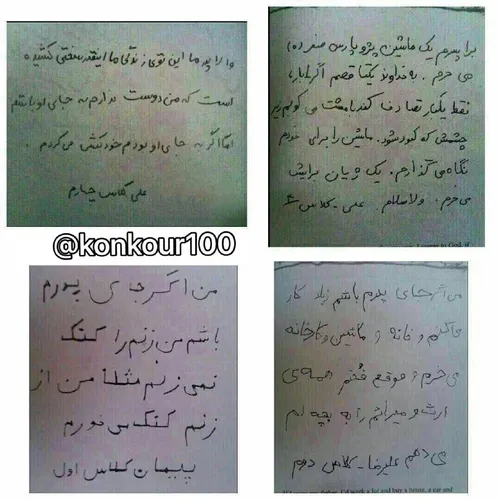 برا پدرم یک ماشین پژو پارس صفر ده
می خرم. به خداوند یکتا قصم اگر بابا،
فقط یکبار تصادف کند با مشت می کوبم زیر
چشمش که کبود شود. ماشین را برای خودم
نگاه می گذارم. یک ژیان برایش
می خرم. والاسلام. علی - کلاس
در این توی زندگی ما اینقدر سختی کشیده
است که من دوست ندارم به جای او باشم
اما اگر به جای او بودم خودکشی می کردم.
علی کلاس چهارم
@konkour100
من اگر جای پدرم باشم زیاد کار
می کنم و خانه و ماشین و کارخانه
می خرم و موقع فُتم همه ی
ارث و میراثم را به بچه ام
می دهم علیرضا - کلاس دوم
من اگر جای پدرم
باشم من زنم را کتک
نمی زنم مثلاً من از
زنم کتک می خورم
پیمان کلاس اول